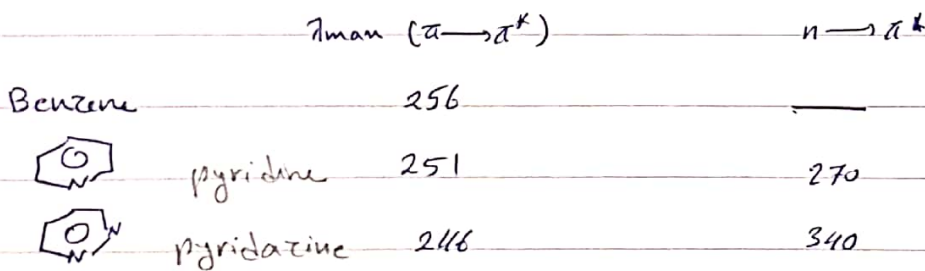 λman (π→π*) n→π*
Benzene 256 —
N pyridine 251 270
N N pyridazine 246 340